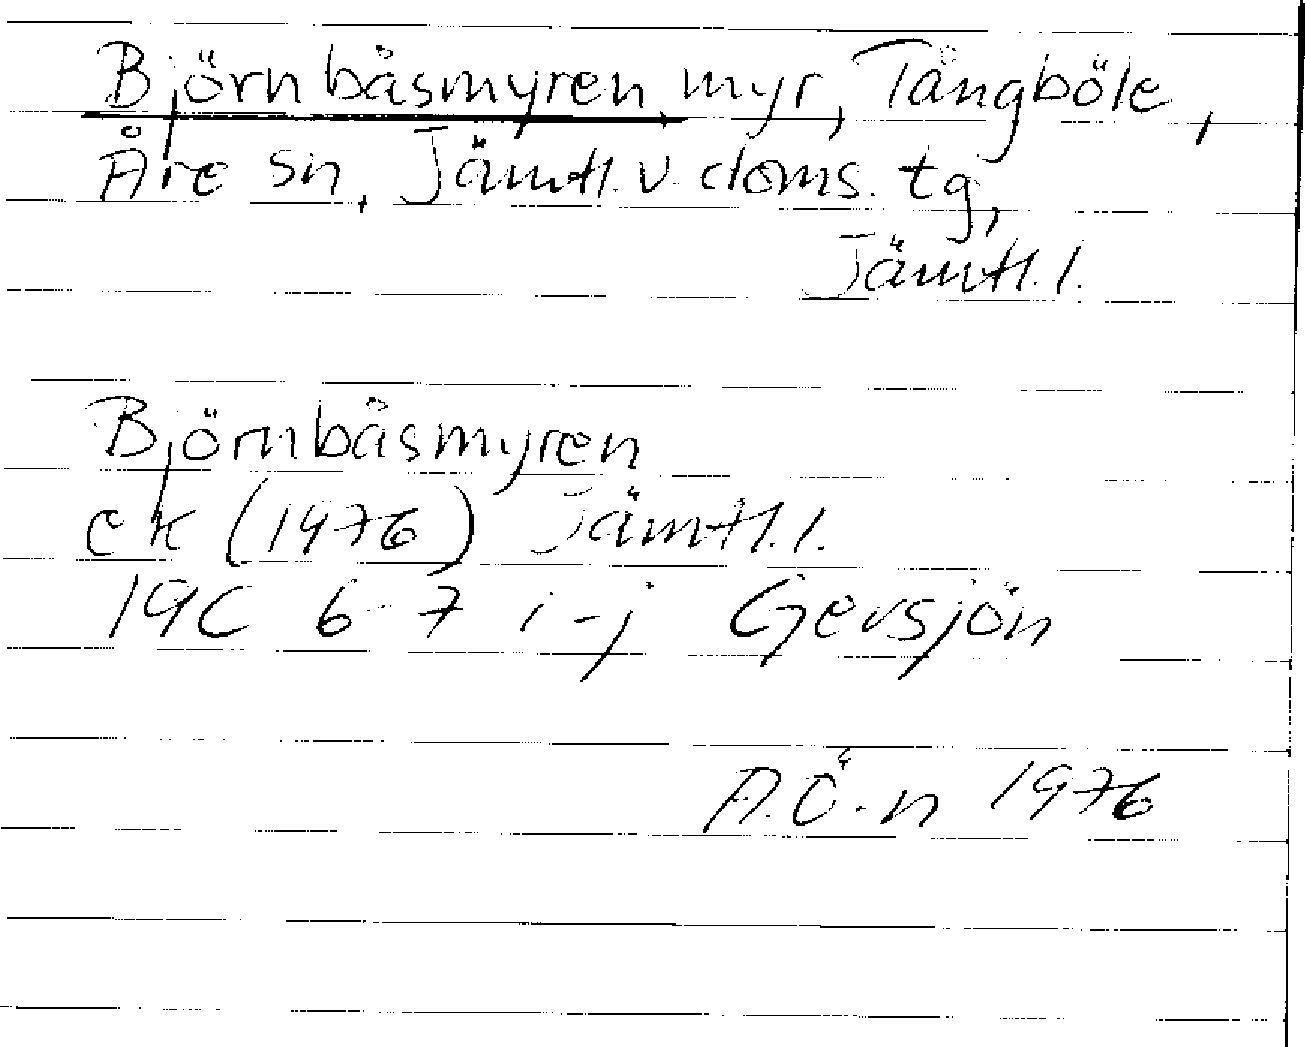 Björnbåsmyren, myr, Tångböle,
Åre sn, Jämtl. v. doms. tg,
Jämtl. l.
Björnbåsmyren
ek (1976) Jämtl. l.
19C 6-7 i-j Gevsjön
A.Ö-n 1976